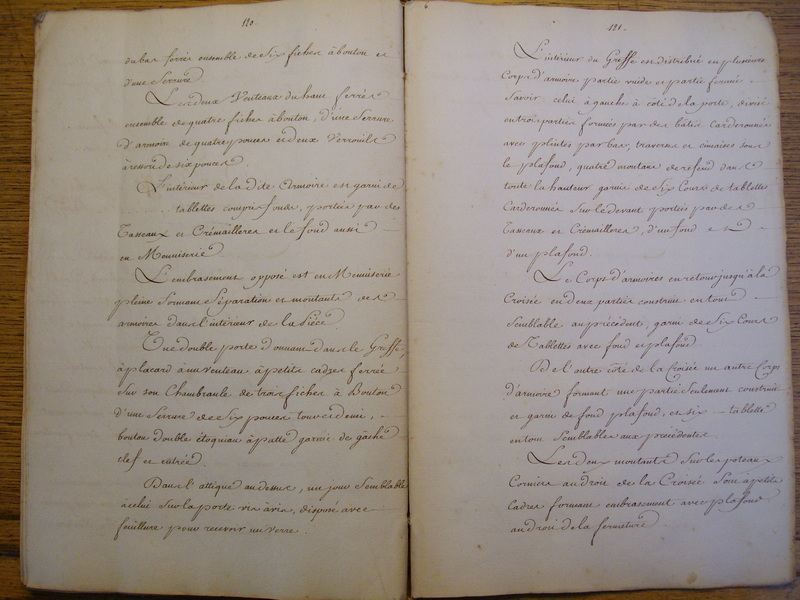 120.
du bas ferrés ensemble de six fiches à bouton et
d'une Serrure
Les deux Venteaux du haut ferrés
ensemble de quatre fiches à bouton, d'une Serrure
d'armoire de quatre pouces et deux Verrouils
à ressort de six pouces.
L'intérieur de la dite Armoire est garni de
tablettes compris fonds, portées par des
Tasseaux et Crémailleres et le fond aussi
en Menuiserie
L'embrasement opposé est en Menuiserie
pleine formant Séparation et montants des
armoires dans l'intérieur de la Pièce
Une double porte donnant dans le Greffe,
à placard à un venteau à petits cadres ferrée
sur son Chambranle de trois fiches à Bouton
d'une Serrure de Six pouces tour et demi,
bouton double étoquiau à patte garnie de gâche
clef et entrée.
Dans l'attique au dessus, un jour Semblable
à celui Sur la porte vis avis, disposé avec
feuillure pour recevoir un verre.
121.
L'intérieur du Greffe est distribué en plusieurs
Corps d'armoire partie vuide et partie fermé
Savoir celui à gauche à côté de la porte, divisé
en trois parties formées par des bâtis Carderonnés
avec plintes par bas, traverses et cimaises sous
le plafond, quatre montans de refend dans
toute la hauteur garnie de six Cours de tablettes
Carderonnées Sur le devant portées par des
Tasseaux et Crémailleres, d'un fond et
d'un plafond.
Le Corps d'armoires en retour jusqu'à la
Croisée en deux parties construit en tout
Semblable au précédent, garni de Six Cours
de Tablettes avec fond et plafond.
De l'autre côté de la Croisée un autre Corps
d'armoire formant une partie Seulement construite
et garni de fond plafond, et six tablettes
en tout Semblables aux précédentes.
Les deux montants Sur les poteaux
Corniers au droit de la Croisée Sont à petits
Cadres formant embrasement avec plafond
au droit de la fermeture